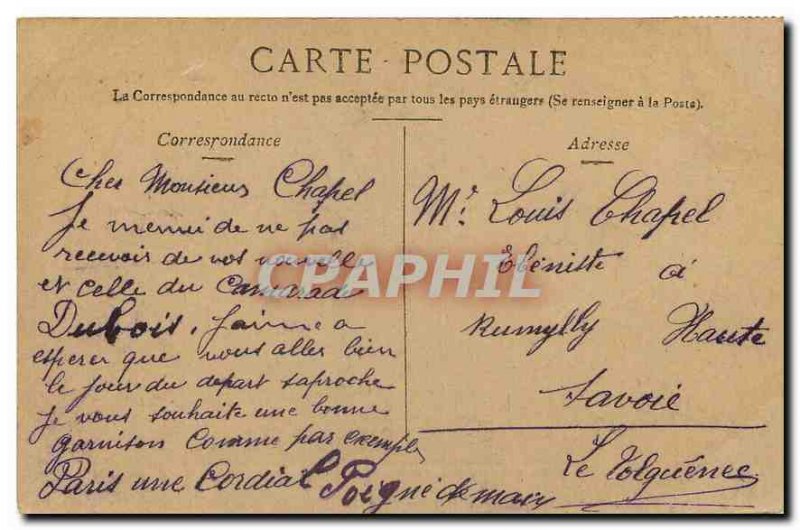 CARTE POSTALE
La Correspondance au recto n'est pas acceptée par tous les pays étrangers (Se renseigner à la Poste).
Correspondance
Cher Monsieur Chapel
Je mennui de ne pas
recevoir de vos nouvelle
et celle du Camarade
Dubois. Jaime a
esperer que vous aller bien
le jour du depart saproche
Je vous souhaite une bonne
garnison Comme par exemple
Paris une Cordial Poigné de main
Adresse
Mr. Louis Chapel
Ebéniste à
Rumylly Haute
Savoie
Le Tolguénec
CPAPHIL